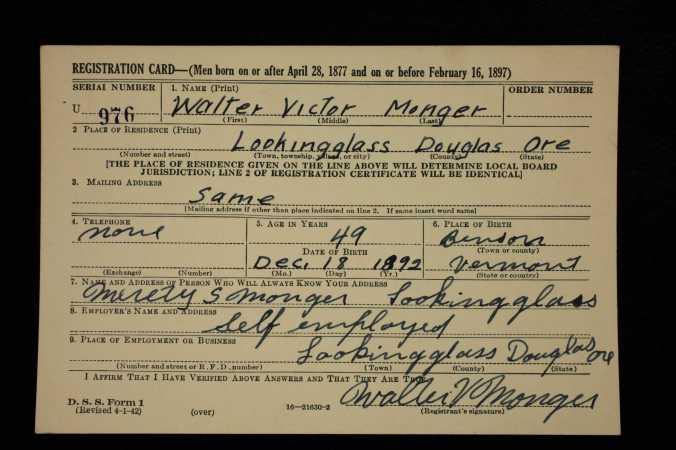 REGISTRATION CARD—(Men born on or after April 28, 1877 and on or before February 16, 1897)
SERIAL NUMBER 1. NAME (Print) ORDER NUMBER
U 976 Walter Victor Monger
(First) (Middle) (Last)
2 PLACE OF RESIDENCE (Print)
Lookingglass Douglas Ore
(Number and street) (Town, township, village, or city) (County) (State)
[THE PLACE OF RESIDENCE GIVEN ON THE LINE ABOVE WILL DETERMINE LOCAL BOARD
JURISDICTION; LINE 2 OF REGISTRATION CERTIFICATE WILL BE IDENTICAL]
3. MAILING ADDRESS
Same
[Mailing address if other than place indicated on line 2. If same insert word same]
4. TELEPHONE 5. AGE IN YEARS 6. PLACE OF BIRTH
none 49 Benson
DATE OF BIRTH (Town or county)
Dec. 18 1892 Vermont
(Exchange) (Number) (Mo.) (Day) (Yr.) (State or country)
7. NAME AND ADDRESS OF PERSON WHO WILL ALWAYS KNOW YOUR ADDRESS
S Monger Lookingglass
8. EMPLOYER'S NAME AND ADDRESS
Self employed
9. PLACE OF EMPLOYMENT OR BUSINESS
Lookingglass Douglas ore
(Number and street or R. F. D. number) (Town) (County) (State)
I AFFIRM THAT I HAVE VERIFIED ABOVE ANSWERS AND THAT THEY ARE TRUE.
D. S. S. Form 1 Walter V Monger
(Revised 4-1-42) (over) 16—21630-2 (Registrant's signature)